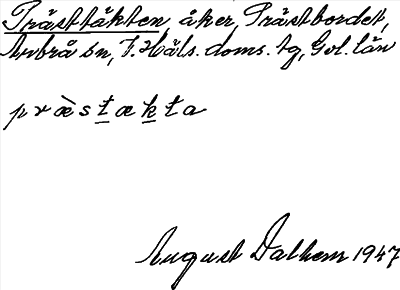 Prästtäkten åker, Prästbordet,
Arbrå sn, F. Häls. doms. tg, Gvl. län
præ̀stækta
August Dalhem 1947